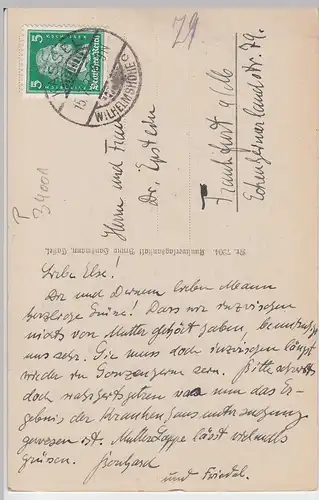 5 Deutsches Reich 5
WILHELMSHÖHE
29
P
34001
Herrn und Frau
Dr. Epstein
Frankfurt a/M
Eckenheimerlandstr. 79.
Nr. 7204 Kunstverlagsanstalt Bruno Hansmann, Cassel.
Liebe Else!
Dir und Deinem lieben Mann
herzliche Grüße! Dass wir inzwischen
nichts von Mutter gehört haben, beunruhigt
uns sehr. Sie muss doch inzwischen längst
wieder in sein. Bitte schreibt
doch was nun das Er-
gebnis der Krankenhausuntersuchung
gewesen ist. Mutter lässt vielmals
grüßen.
und Friedel.